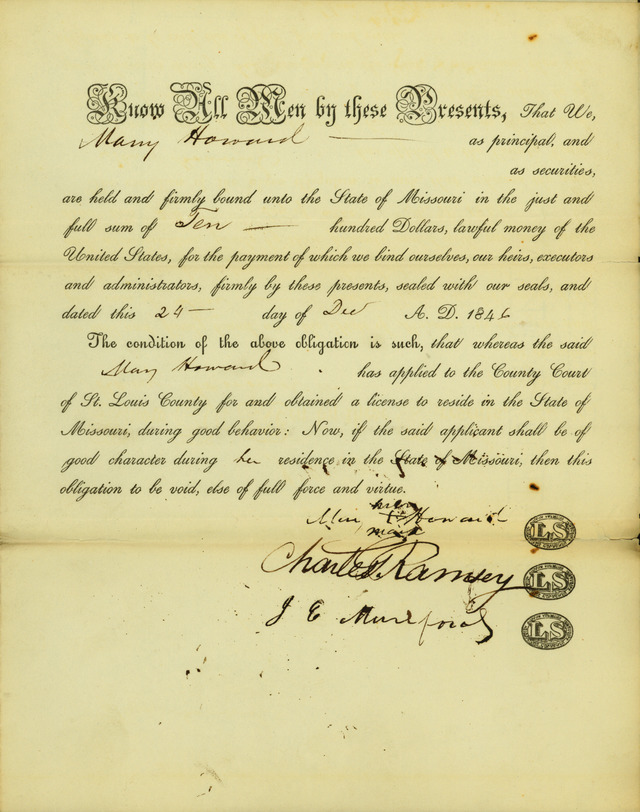 Know All Men by these Presents, That We,
Mary Howard — as principal, and
as securities,
are held and firmly bound unto the State of Missouri in the just and
full sum of Ten — hundred Dollars, lawful money of the
United States, for the payment of which we bind ourselves, our heirs, executors
and administrators, firmly by these presents, sealed with our seals, and
dated this 24 — day of Dec A. D. 1846
The condition of the above obligation is such, that whereas the said
Mary Howard has applied to the County Court
of St. Louis County for and obtained a license to reside in the State of
Missouri, during good behavior: Now, if the said applicant shall be of
good character during her residence in the State of Missouri, then this
obligation to be void, else of full force and virtue.
her
Howard
mark
LS
Charles Ramsey
LS
J E
LS